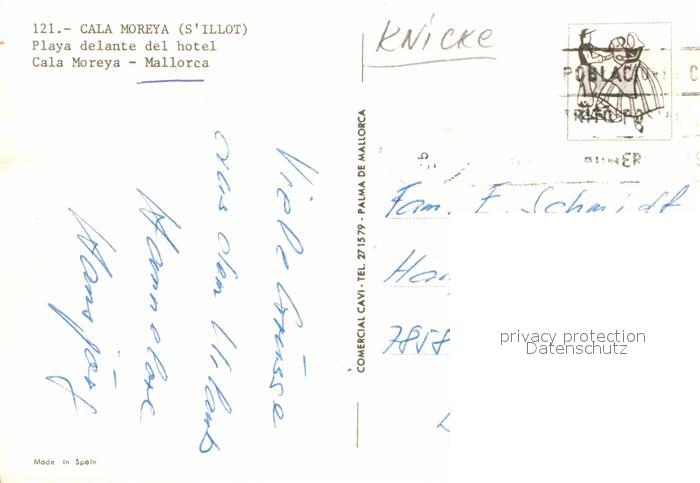 121.- CALA MOREYA (S'ILLOT)
Playa delante del hotel
Cala Moreya - Mallorca
KNICKE
POBLAC
Viele Grüsse
aus dem Urlaub
Hannelore
Hansjörg
COMERCIAL CAVI - TEL. 271579 - PALMA DE MALLORCA
Fam. E. Schmidt
7858
privacy protection
Datenschutz
Made in Spain